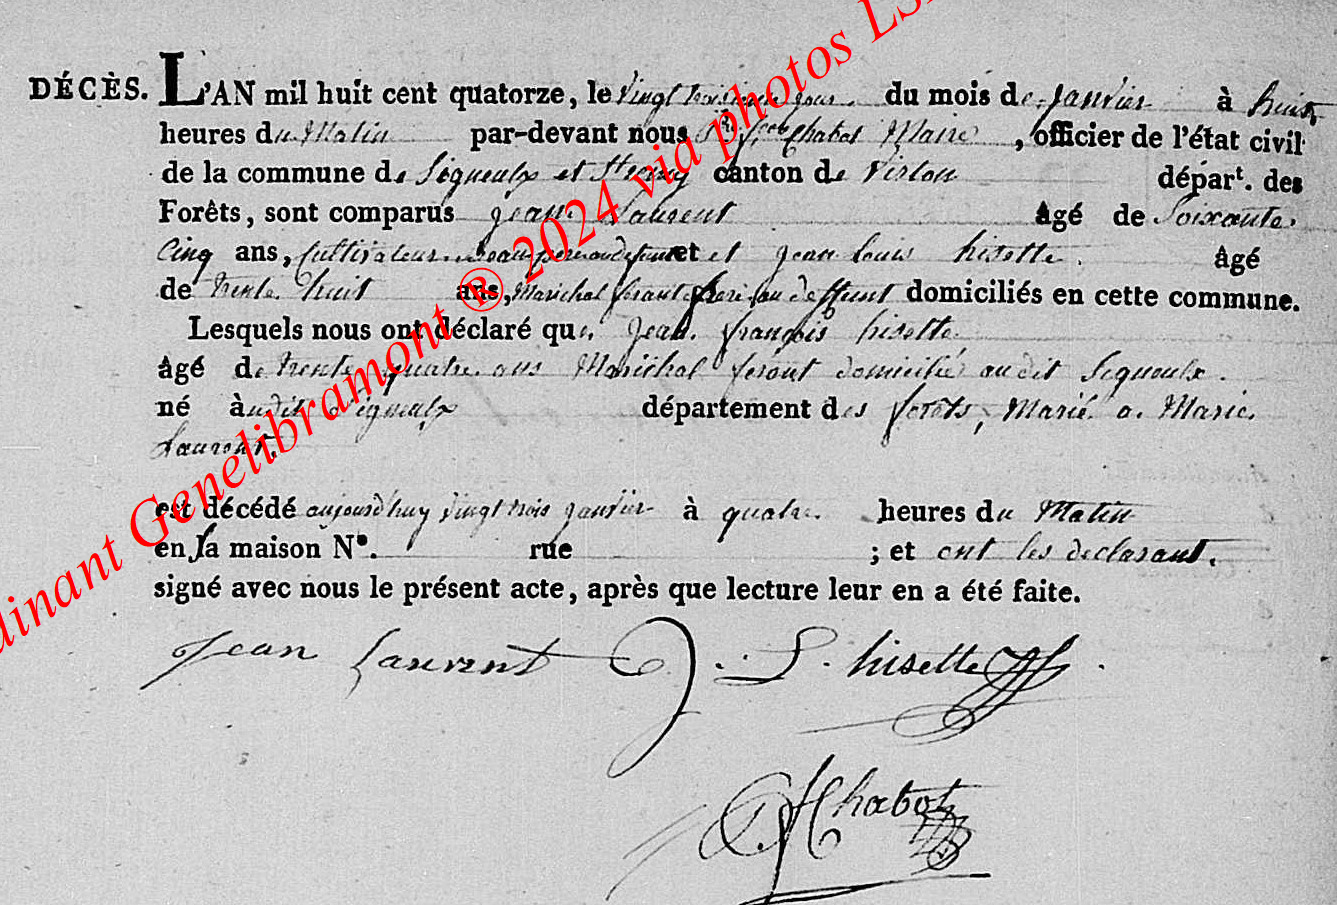 DÉCÈS. L'AN mil huit cent quatorze, le vingt troisieme jour du mois de janvier à huit
heures du Matin par-devant nous Chabot Maire, officier de l'état civil
de la commune de Signeulx et canton de Virton départ. des
Forêts, sont comparus jean Laurent âgé de Soixante
Cinq ans, cultivateur beau pere au defunt et et jean louis hisette âgé
de trente huit ans, Maréchal ferant frere au deffunt domiciliés en cette commune.
Lesquels nous ont déclaré que jean françois hisette
âgé de trente quatre ans Maréchal ferant domicilié audit Signeulx
né à audit Signeulx département des forêts, Marié a Marie
Laurent.
est décédé aujourd'huy vingt trois janvier à quatre heures du Matin
en la maison N°. rue ; et ont les declarant.
signé avec nous le présent acte, après que lecture leur en a été faite.
Jean Laurent J. L. hisette
Chabot
dinant Genelibramont ® 2024 via photos LS